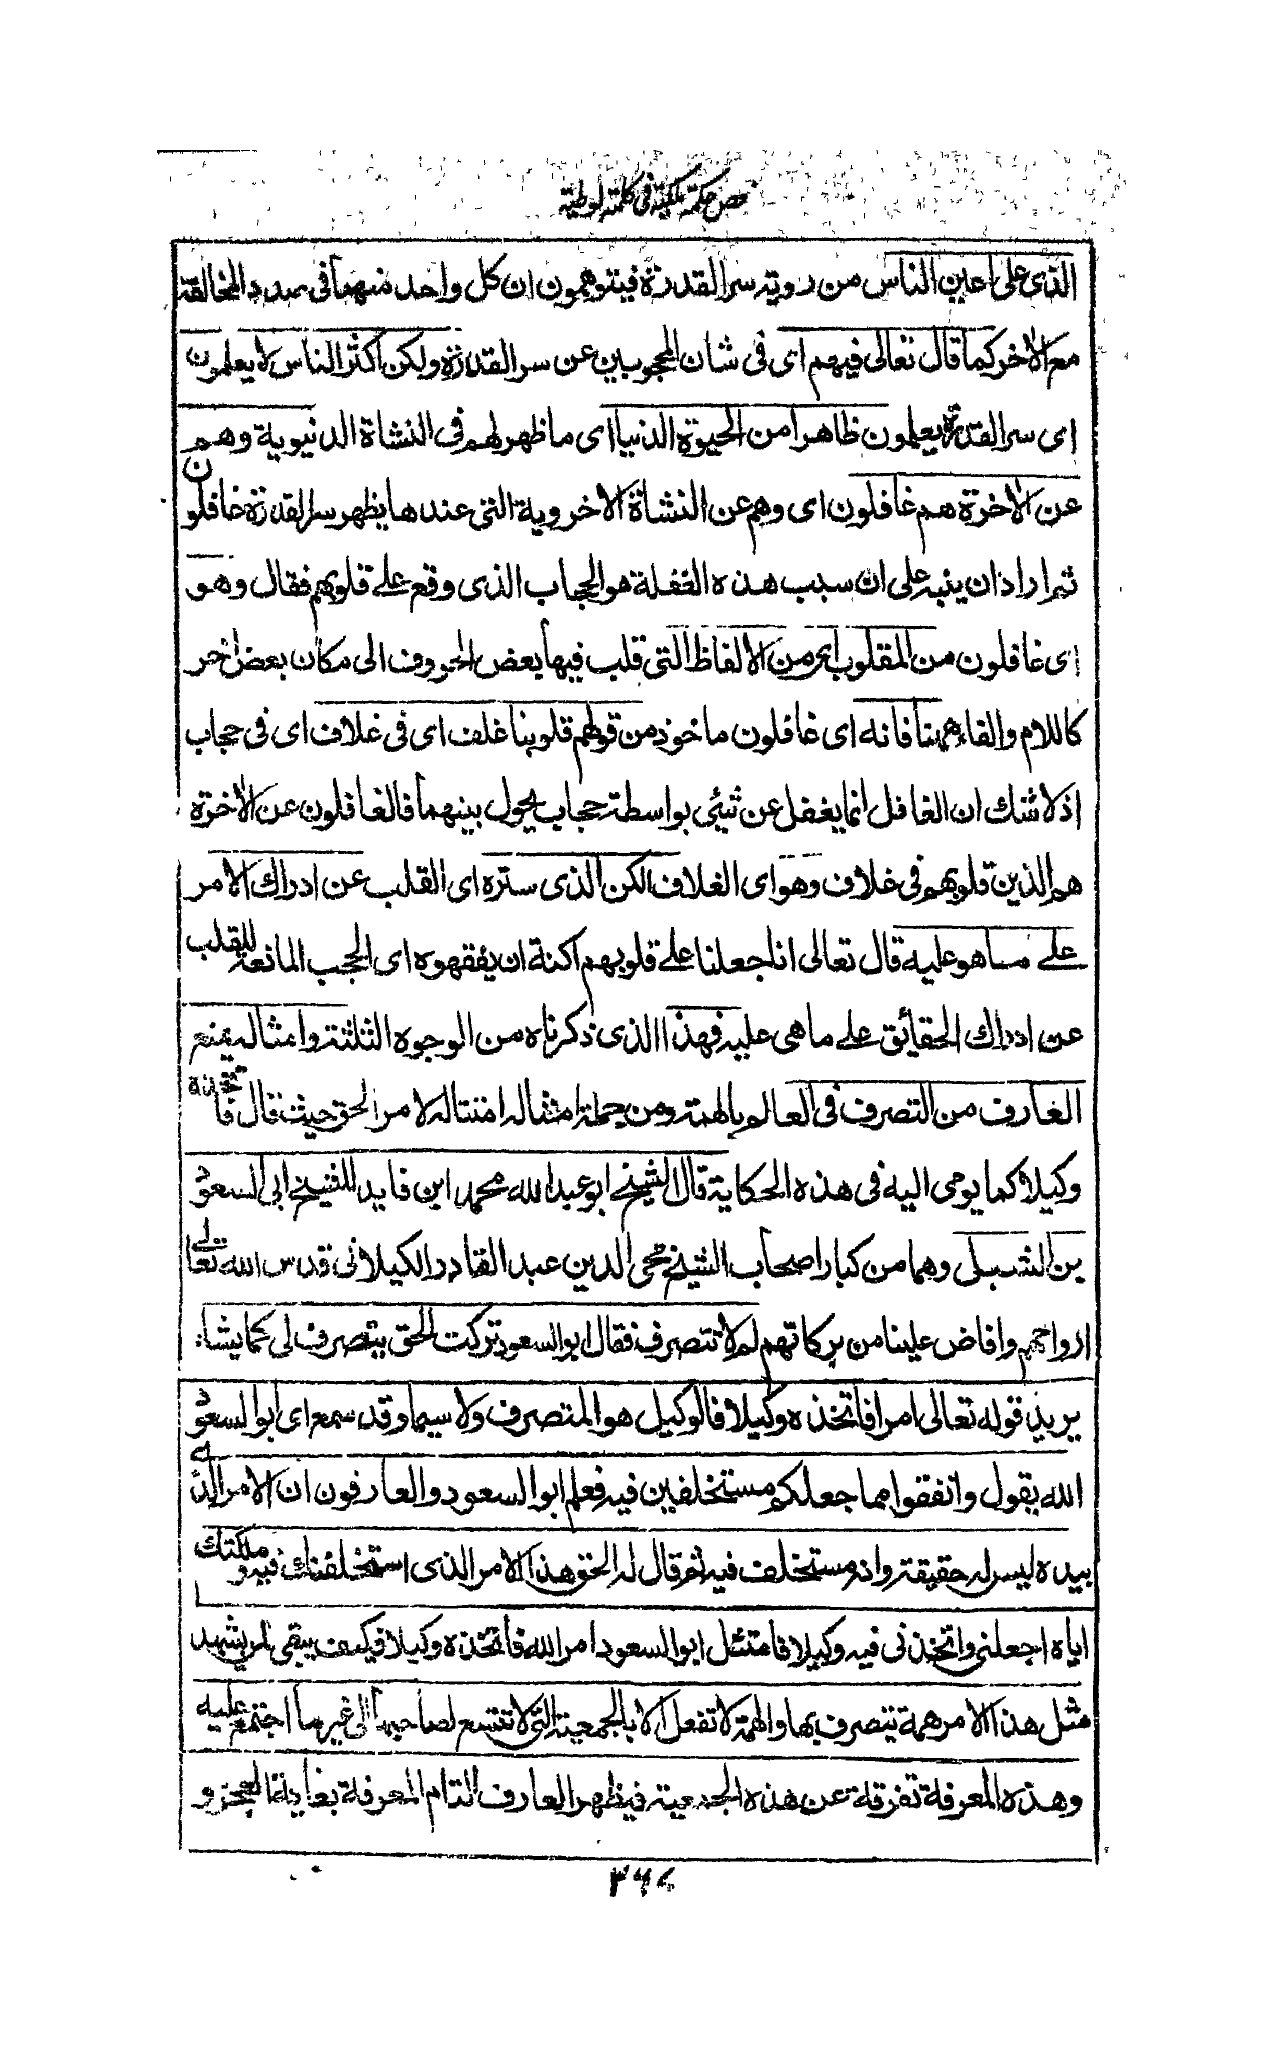 فص حكمة ملكية في كلمة لوطية
الذى على اعين الناس من روية سر القدرة فيتوهمون ان كل واحد منهما فى صدد المخالفة
مع الاخر كما قال تعالى فيهم اى فى شان المحجوبين عن سر القدرة ولكن اكثر الناس لا يعلمون
اى سر القدرة يعلمون ظاهرا من الحيوة الدنيا اى ما ظهر لهم فى النشاة الدنيوية وهم
عن الاخرة هم غافلون اى وهم عن النشاة الاخروية التى عندها يظهر سر القدرة غافلون
ثم اراد ان ينبه على ان سبب هذه الغفلة هو الحجاب الذى وقع على قلوبهم فقال وهو
اى غافلون من المقلوب اى من الالفاظ التى قلب فيها بعض الحروف الى مكان بعض اخر
كاللام والفاء ههنا فانه اى غافلون ماخوذ من قولهم قلوبنا غلف اى فى غلاف اى فى حجاب
اذ لا شك ان الغافل انما يغفل عن شئى بواسطة حجاب يحول بينهما فالغافلون عن الاخرة
هم الذين قلوبهم فى غلاف وهو اى الغلاف الكن الذى ستره اى القلب عن ادراك الامر
على ما هو عليه قال تعالى انا جعلنا على قلوبهم اكنة ان يفقهوه اى الحجب المانعة للقلب
عن ادراك الحقائق على ما هى عليه فهذا الذى ذكرناه من الوجوه الثلثة وامثاله يمنع
العارف من التصرف فى العالم بالهمة ومن جملة امثاله امتثاله لامر الحق حيث قال فاتخذه
وكيلا كما يومى اليه فى هذه الحكاية قال الشيخ ابو عبد الله محمد ابن قايد للشيخ ابى السعود
بن الشبلى وهما من كبار اصحاب الشيخ محى الدين عبد القادر الكيلانى قدس الله تعالى
ارواحهم وافاض علينا من بركاتهم لم لا تتصرف فقال ابو السعود تركت الحق يتصرف لى كما يشاء
يريد قوله تعالى امرا فاتخذه وكيلا فالوكيل هو المتصرف ولا سيما وقد سمع اى ابو السعود
الله يقول وانفقوا مما جعلكم مستخلفين فيه فعلم ابو السعود والعارفون ان الامر الذى
بيده ليس له حقيقة وانه مستخلف فيه ثم قال له الحق هذا الامر الذى استخلفتك فيه وملكتك
اياه اجعلنى واتخذنى فيه وكيلا فامتثل ابو السعود امر الله فاتخذه وكيلا فكيف يبقى لمن يشهد
مثل هذا الامر همة يتصرف بها والهمة لا تفعل الا بالجمعية التى لا تتسع لصاحبها الى غير ما اجتمع عليه
وهذه المعرفة تفرقة عن هذه الجمعية فيظهر العارف التام المعرفة بغاية العجز و